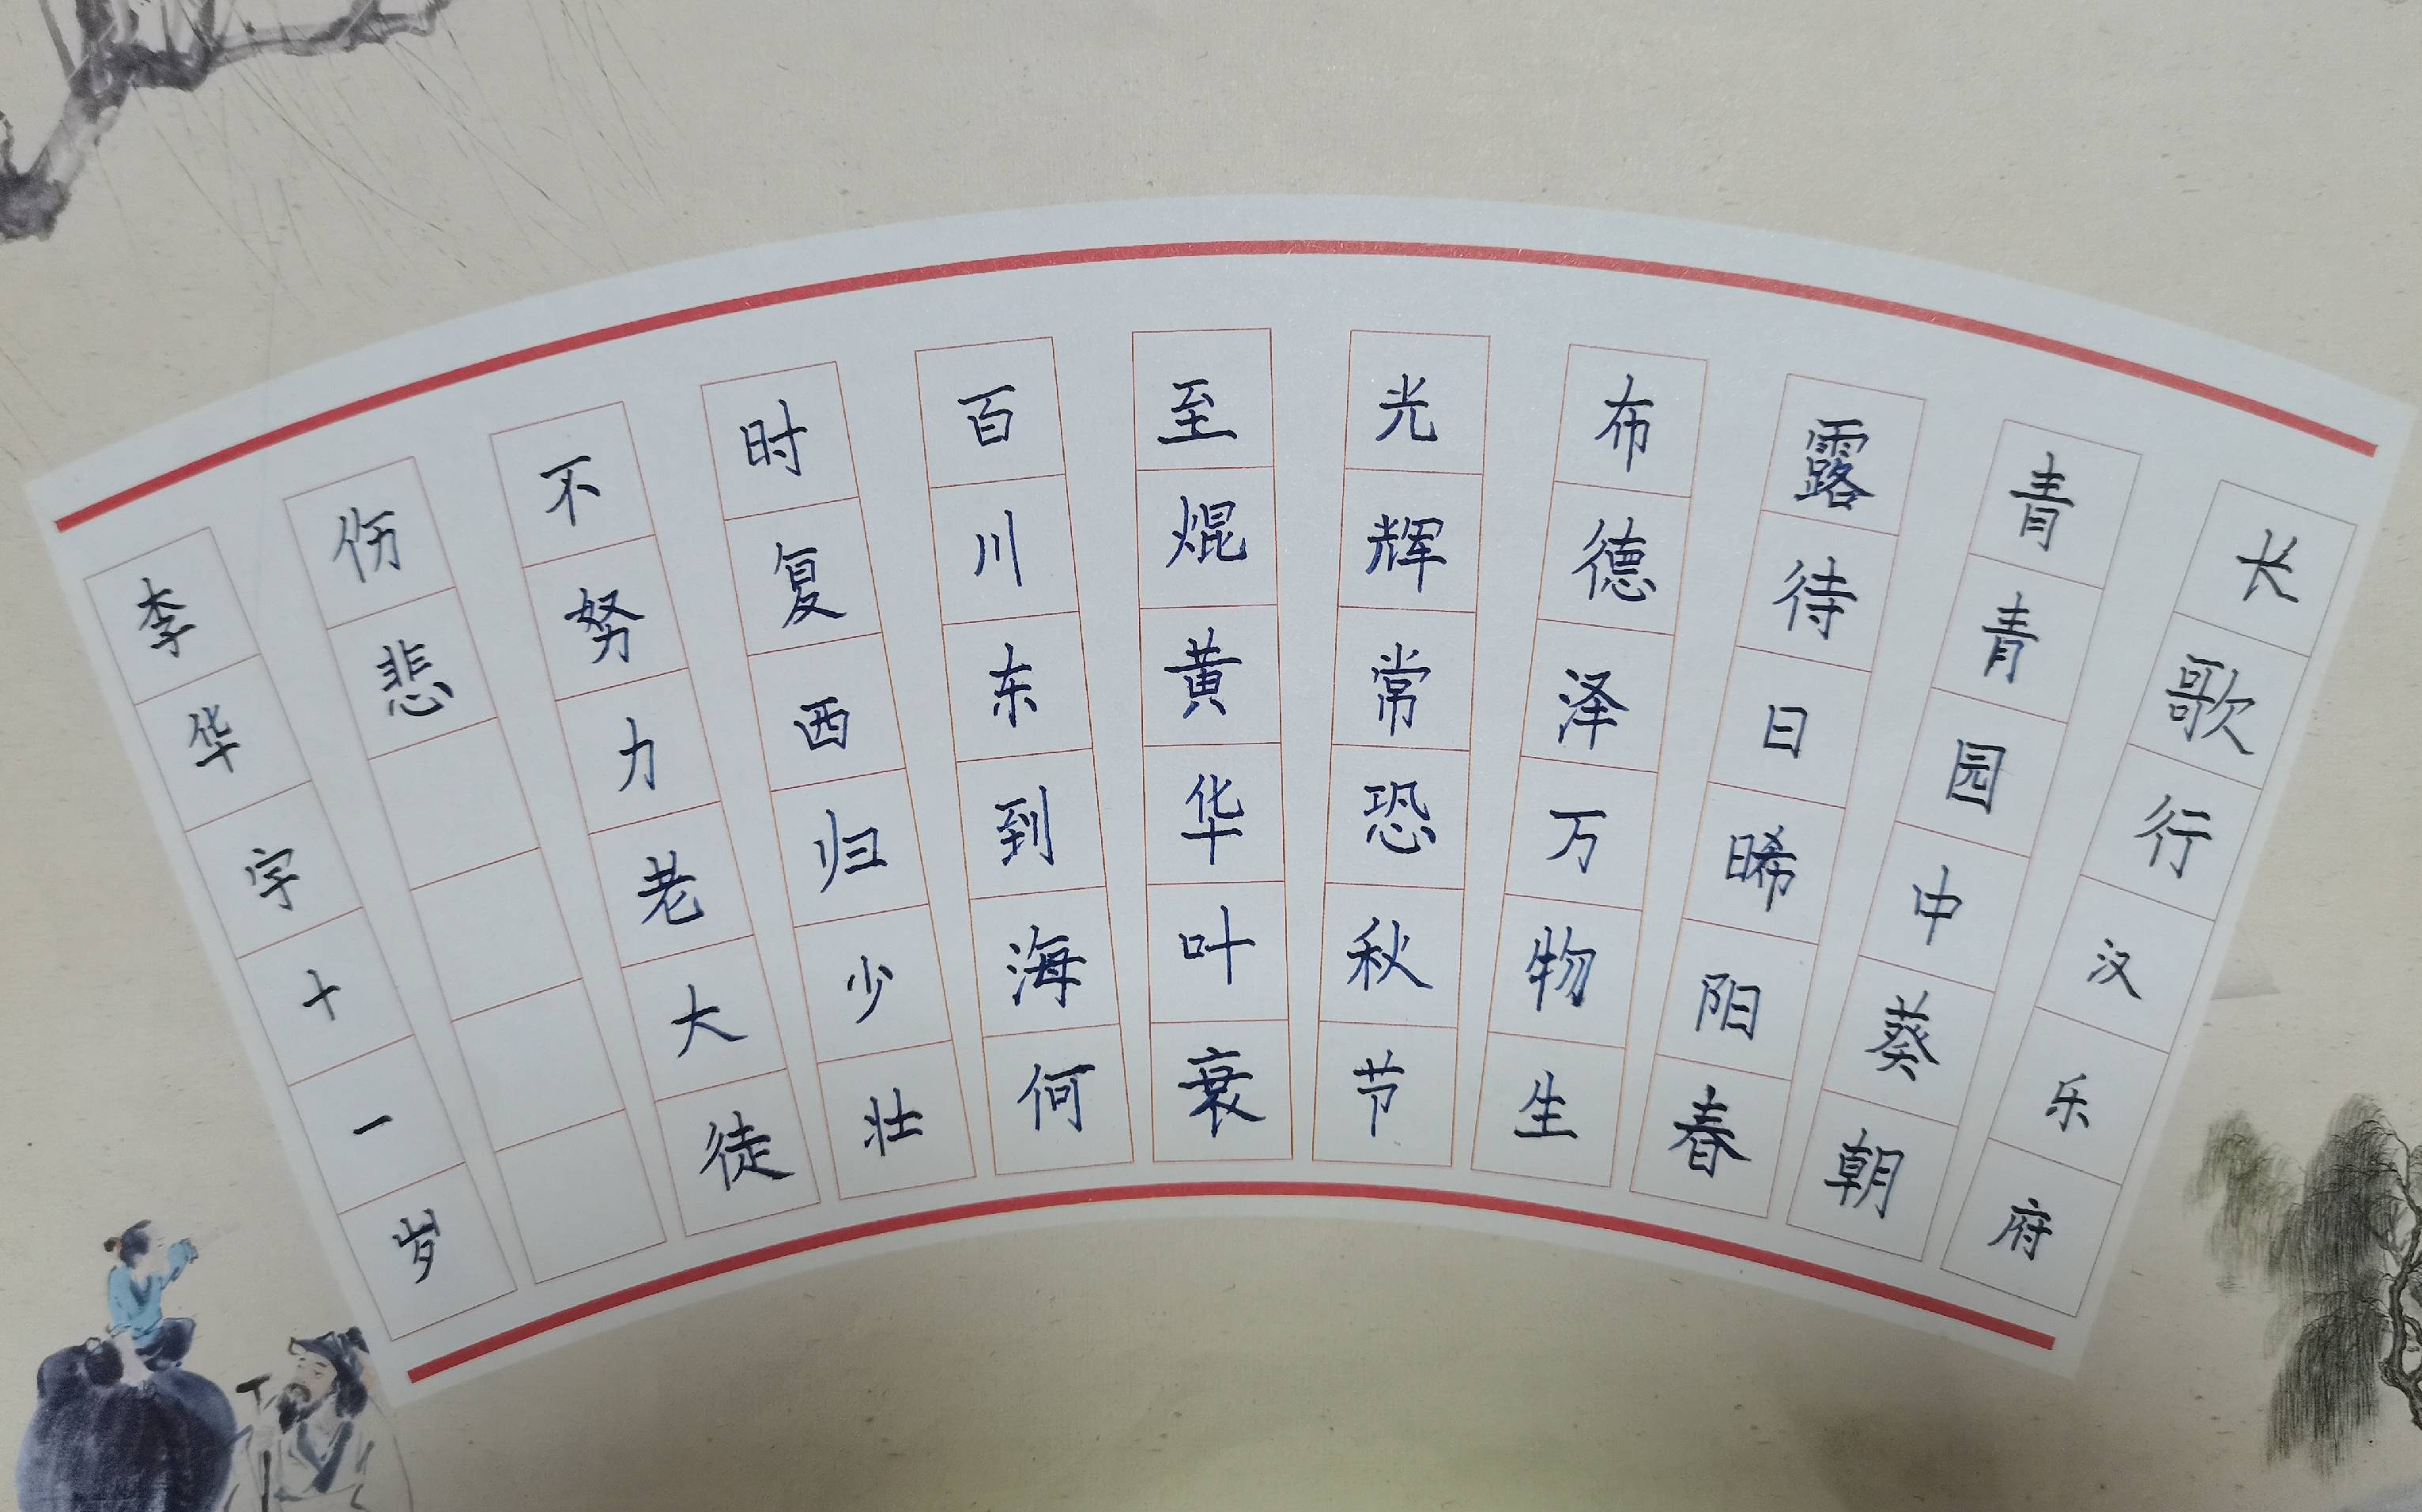 长歌行汉乐府
青青园中葵朝
露待日晞阳春
布德泽万物生
光辉常恐秋节
至焜黄华叶衰
百川东到海何
时复西归少壮
不努力老大徒
伤悲
李华字十一岁